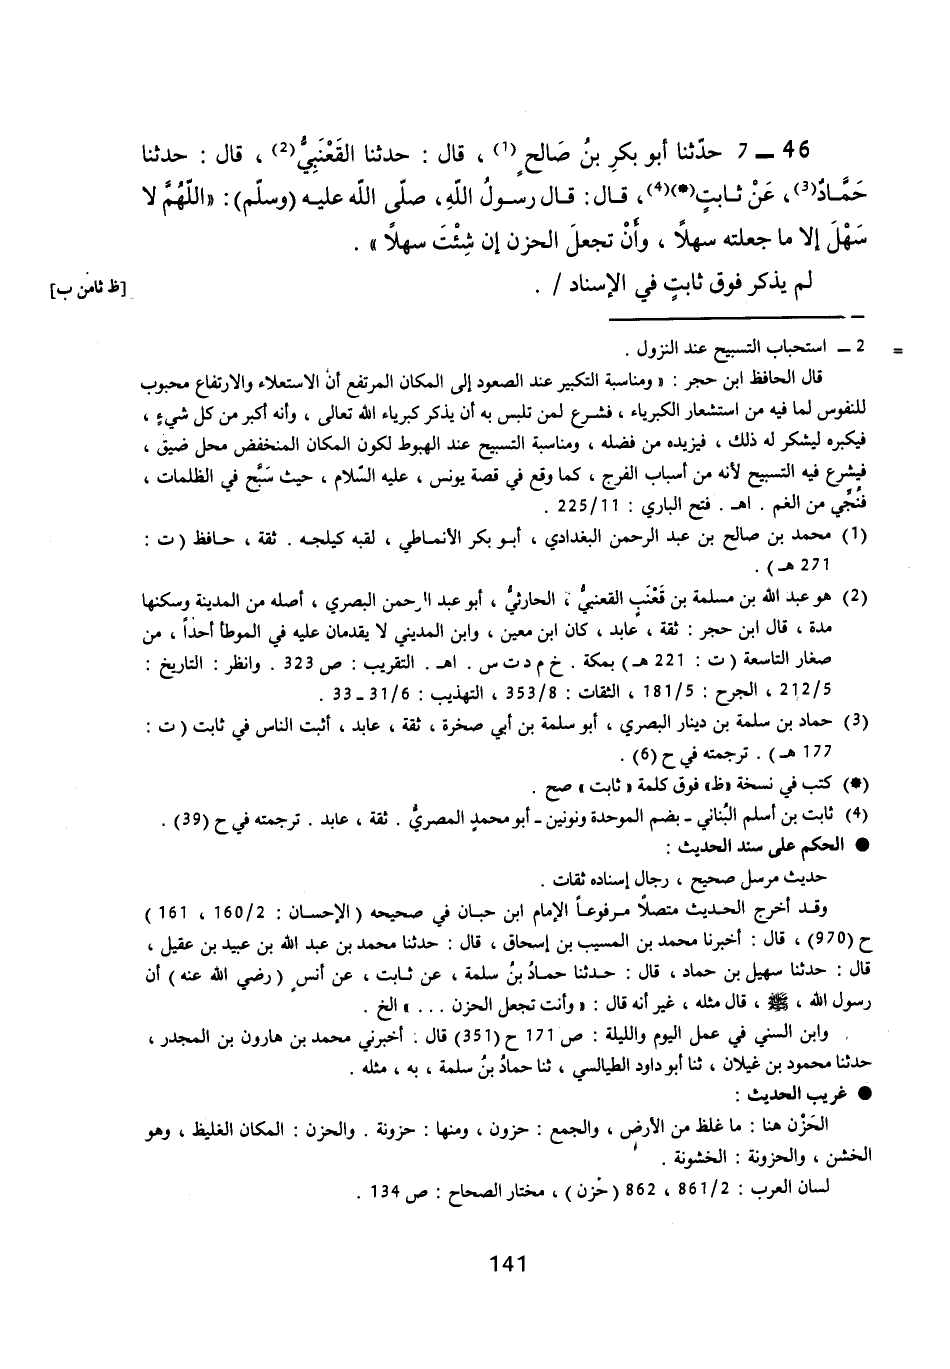 46 – 7 حدّثنا أبو بكرِ بنُ صَالحٍ (1) ، قال : حدثنا القَعْنَبِيُّ (2) ، قال : حدثنا
حَمَّادٌ (3) ، عَنْ ثابتٍ (*)(4) ، قال : قال رسولُ اللّهِ، صلّى اللّه عليه (وسلّم) : «اللّهُمَّ لا
سَهْلَ إلا ما جعلته سهلاً ، وأَنْ تجعلَ الحزن إن شِئْتَ سهلاً » .
لم يذكر فوق ثابتٍ في الإسناد / .
[ظ ثامن ب]
= 2 – استحباب التسبيح عند النزول .
قال الحافظ ابن حجر : « ومناسبة التكبير عند الصعود إلى المكان المرتفع أن الاستعلاء والارتفاع محبوب
للنفوس لما فيه من استشعار الكبرياء ، فشرع لمن تلبس به أن يذكر كبرياء الله تعالى ، وأنه أكبر من كل شيءٍ ،
فيكبره ليشكر له ذلك ، فيزيده من فضله ، ومناسبة التسبيح عند الهبوط لكون المكان المنخفض محل ضيق ،
فيُشرع فيه التسبيح لأنه من أسباب الفرج ، كما وقع في قصة يونس ، عليه السّلام ، حيث سَبَّح في الظلمات ،
فنُجِّي من الغم . اهـ . فتح الباري : 225/11 .
(1) محمد بن صالح بن عبد الرحمن البغدادي ، أبو بكر الأنماطي ، لقبه كيلجه . ثقة ، حافظ ( ت :
271 هـ ) .
(2) هو عبد الله بن مسلمة بن قَعْنَبٍ القعنبيُّ ، الحارثيُّ ، أبو عبد الرحمن البصري ، أصله من المدينة وسكنها
مدة ، قال ابن حجر : ثقة ، عابد ، كان ابن معين ، وابن المديني لا يقدمان عليه في الموطأ أحداً ، من
صغار التاسعة ( ت : 221 هـ ) بمكة . خ م د ت س . اهـ . التقريب : ص 323 . وانظر : التاريخ :
212/5 ، الجرح : 181/5 ، الثقات : 353/8 ، التهذيب : 31/6 – 33 .
(3) حماد بن سلمة بن دينار البصري ، أبو سلمة بن أبي صخرة ، ثقة ، عابد ، أثبت الناس في ثابت ( ت :
177 هـ ) . ترجمته في ح (6) .
(*) كتب في نسخة «ظ» فوق كلمة « ثابت » صح .
(4) ثابت بن أسلم البُناني - بضم الموحدة ونونين - أبو محمدٍ المصريُّ . ثقة ، عابد . ترجمته في ح (39) .
● الحكم على سند الحديث :
حديث مرسل صحيح ، رجال إسناده ثقات .
وقد أخرج الحديث متصلاً مرفوعاً الإمام ابن حبان في صحيحه ( الإحسان : 160/2 ، 161 )
ح (970) ، قال : أخبرنا محمد بن المسيب بن إسحاق ، قال : حدثنا محمد بن عبد الله بن عبيد بن عقيل ،
قال : حدثنا سهيل بن حماد ، قال : حدثنا حمادُ بنُ سلمة ، عن ثابت ، عن أنسٍ ( رضي الله عنه ) أن
رسول الله ، ﷺ ، قال مثله ، غير أنه قال : « وأنت تجعل الحزن . . . » الخ .
وابن السني في عمل اليوم والليلة : ص 171 ح (351) قال : أخبرني محمد بن هارون بن المجدر ،
حدثنا محمود بن غيلان ، ثنا أبو داود الطيالسي ، ثنا حمادُ بنُ سلمة ، به ، مثله .
● غريب الحديث :
الحَزْن هنا : ما غلظ من الأرض ، والجمع : حزون ، ومنها : حزونة . والحزن : المكان الغليظ ، وهو
الخشن ، والحزونة : الخشونة .
لسان العرب : 861/2 ، 862 ( حْزن ) ، مختار الصحاح : ص 134 .
141